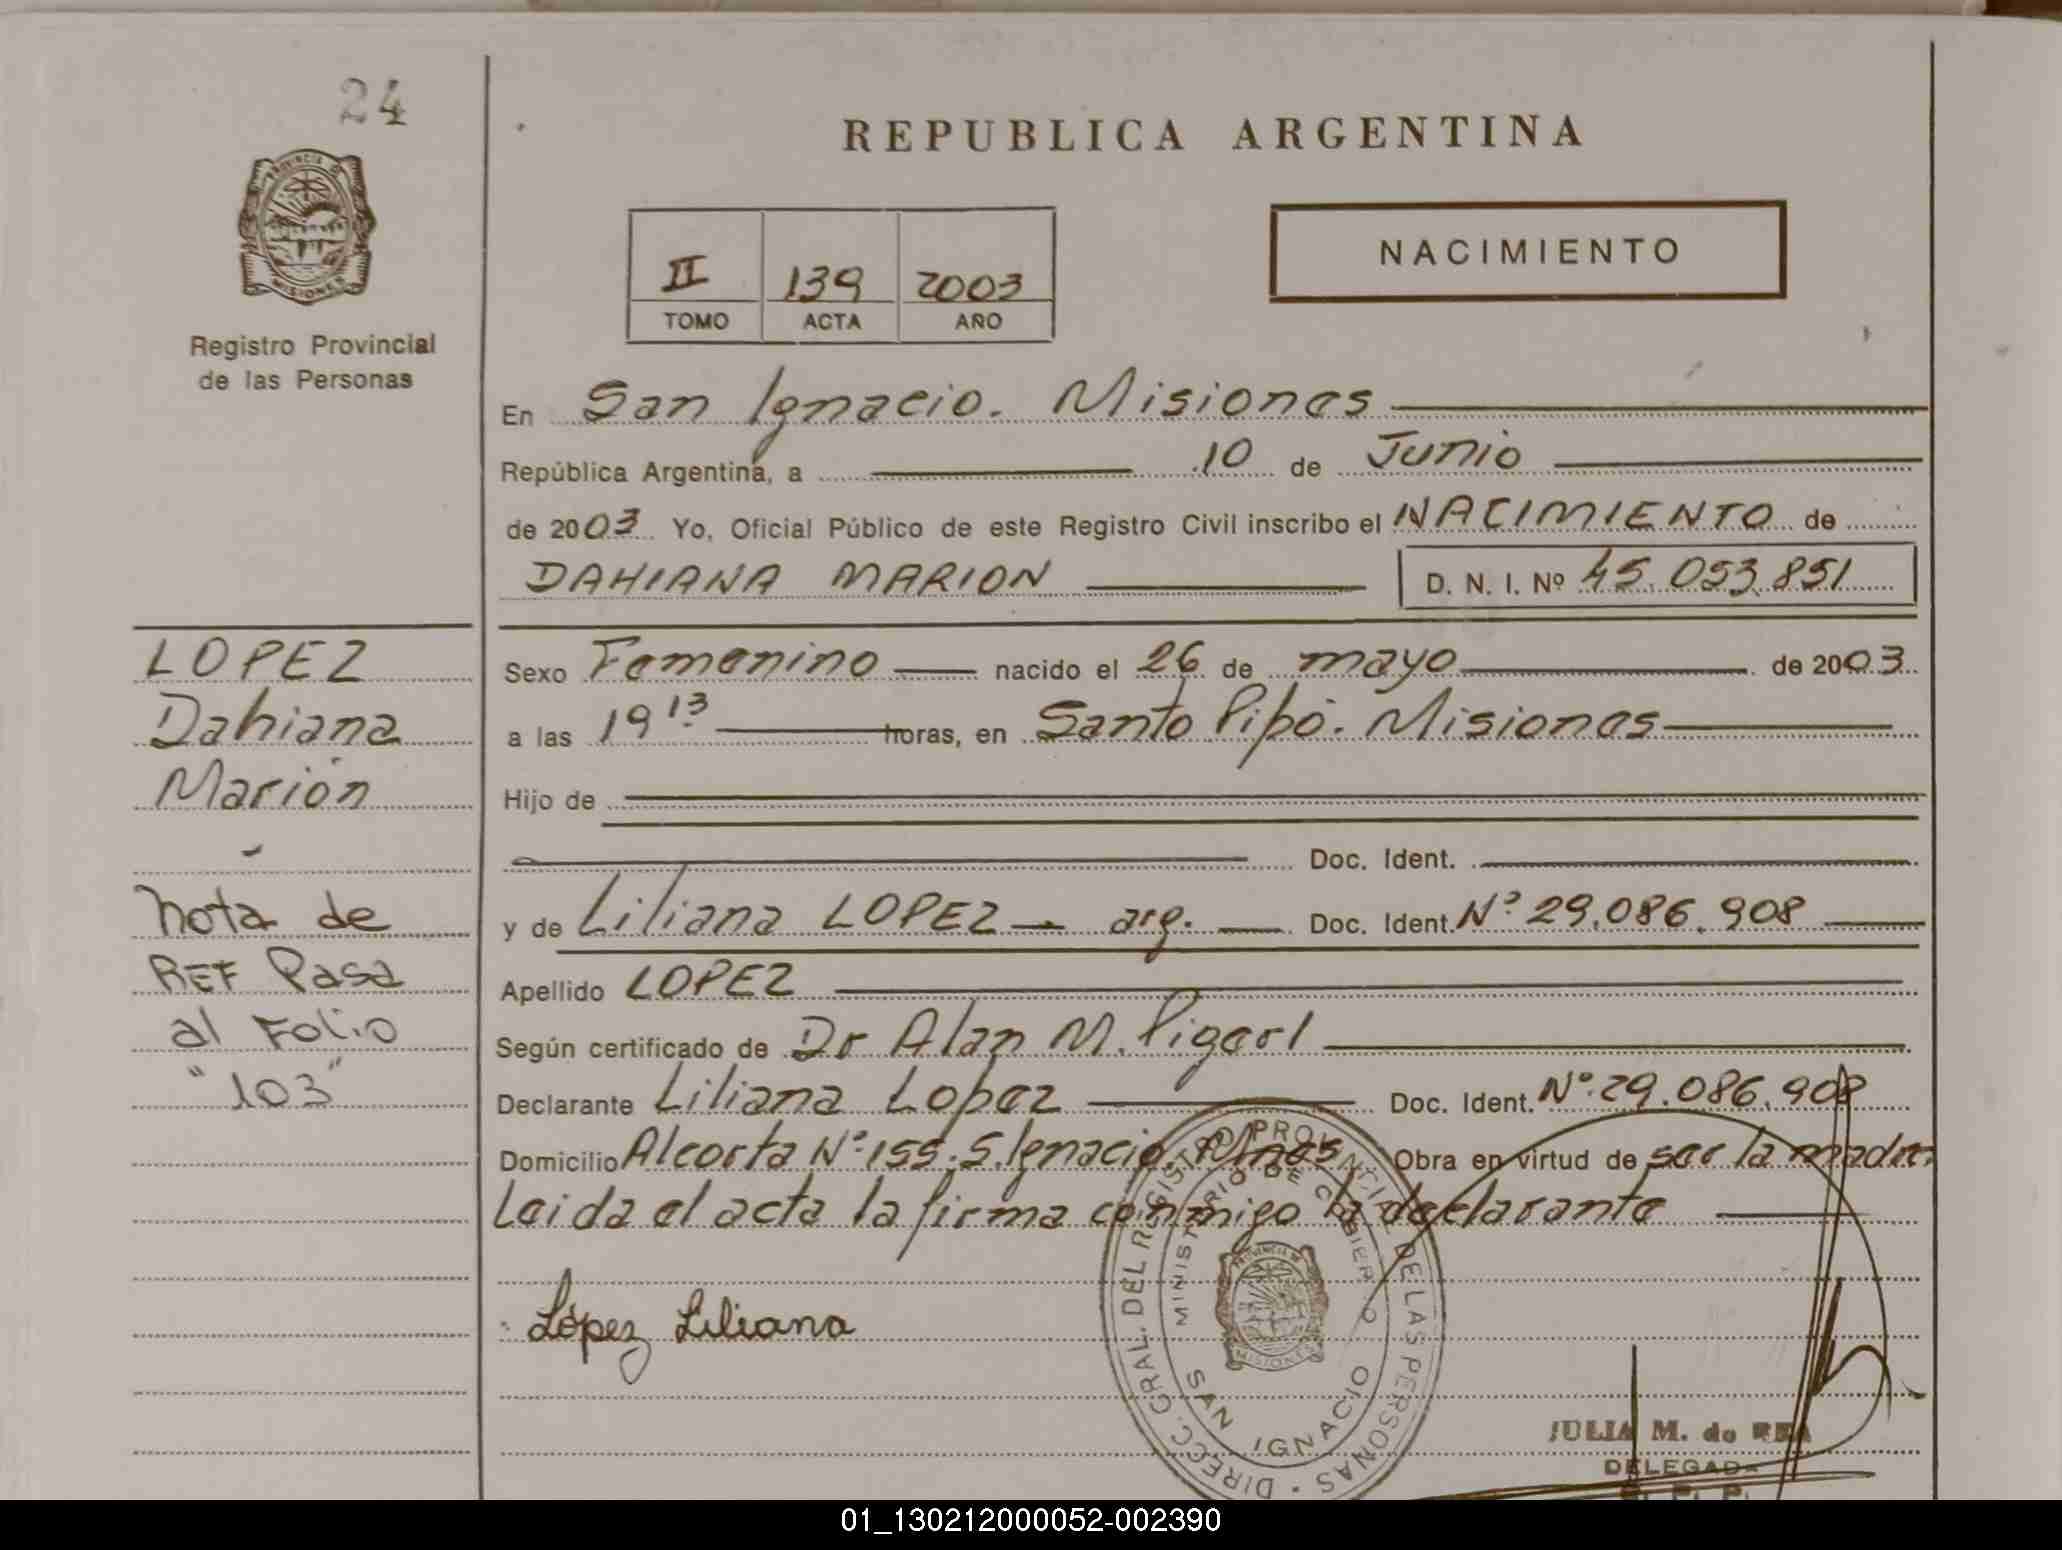 24
REPUBLICA ARGENTINA
PROVINCIA DE
MISIONES
Registro Provincial
de las Personas
II 139 2003
TOMO ACTA AÑO
NACIMIENTO
En San Ignacio. Misiones
República Argentina, a 10 de Junio
de 2003 Yo, Oficial Público de este Registro Civil inscribo el NACIMIENTO de
DAHIANA MARION D. N. I. Nº 45.053.851
LOPEZ
Dahiana
Marión
Nota de
REF Pasa
al Folio
"103"
Sexo Femenino nacido el 26 de mayo de 2003
a las 19 13 horas, en Santo Pipó. Misiones
Hijo de
Doc. Ident.
y de Liliana LOPEZ arg. Doc. Ident. Nº 29.086.908
Apellido LOPEZ
Según certificado de Dr Alan M.
Declarante Liliana Lopez Doc. Ident. Nº 29.086.908
Domicilio Alcorta Nº 155. S. Ignacio. Mnes Obra en virtud de ser la madre.
Leida el acta la firma conmigo la declarante
López Liliana
DIRECC. GRAL. DEL REGISTRO PROVINCIAL DE LAS PERSONAS
MINISTERIO DE GOBIERNO
PROVINCIA DE
MISIONES
SAN IGNACIO
JULIA M. de REA
DELEGADA
R. P. P.
01_130212000052-002390